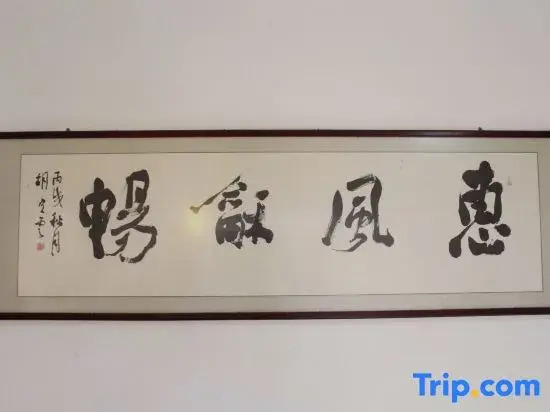 惠風龢暢
丙戌秋月
Trip.com